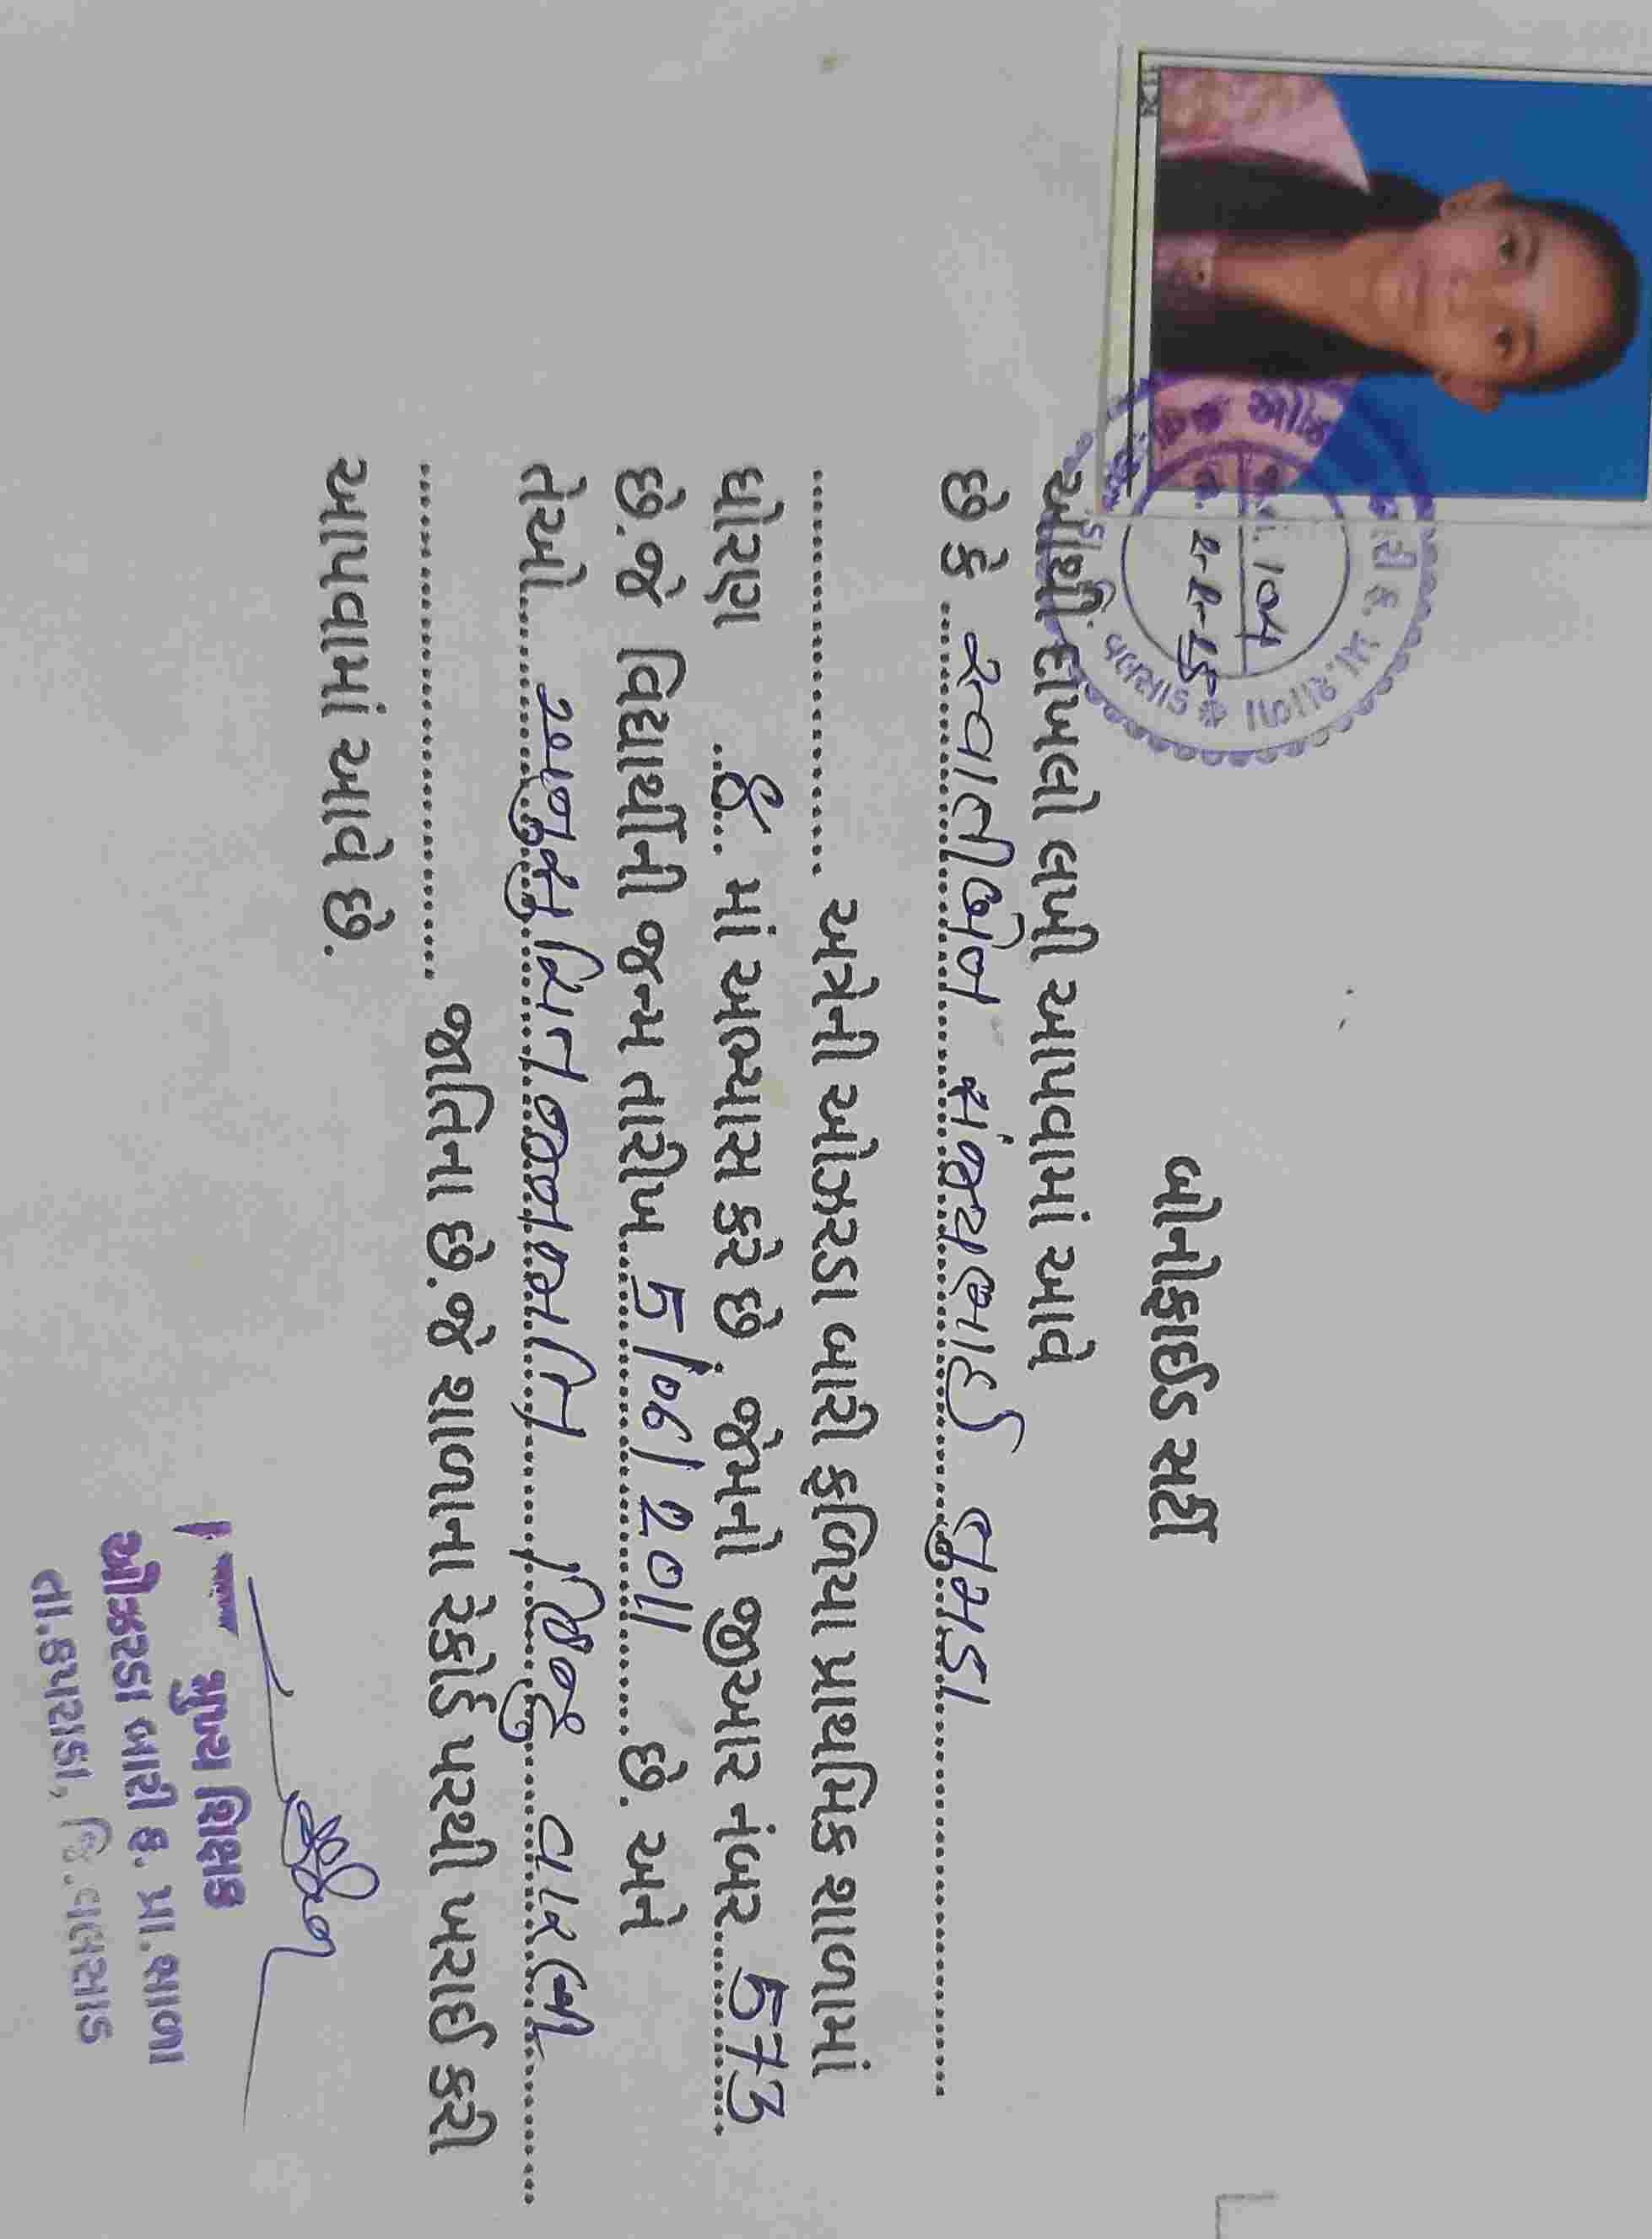 બોનોફાઈડ સર્ટી
આથી દાખલો લખી આપવામાં આવે
છે કે .. સ્વાતીબેન સંજયભાઈ ભુમડા
અત્રેની ઓઝરડા બારી ફળિયા પ્રાથમિક શાળામાં
ધોરણ ૮ માં અભ્યાસ કરે છે. જેમનો જીઆર નંબર 573
છે.જે વિદ્યાર્થીની જન્મ તારીખ 5/06/2011 છે. અને
તેઓ અનુસૂચિત જનજાતિ / હિન્દુ વારલી
જાતિના છે.જે શાળાના રેકોર્ડ પરથી ખરાઈ કરી
આપવામાં આવે છે.
મુખ્ય શિક્ષક
ઓઝરડા બારી ફ. પ્રા.શાળા
તા.કપરાડા, જિ.વલસાડ
બારી ફ. પ્રા.શાળા
104